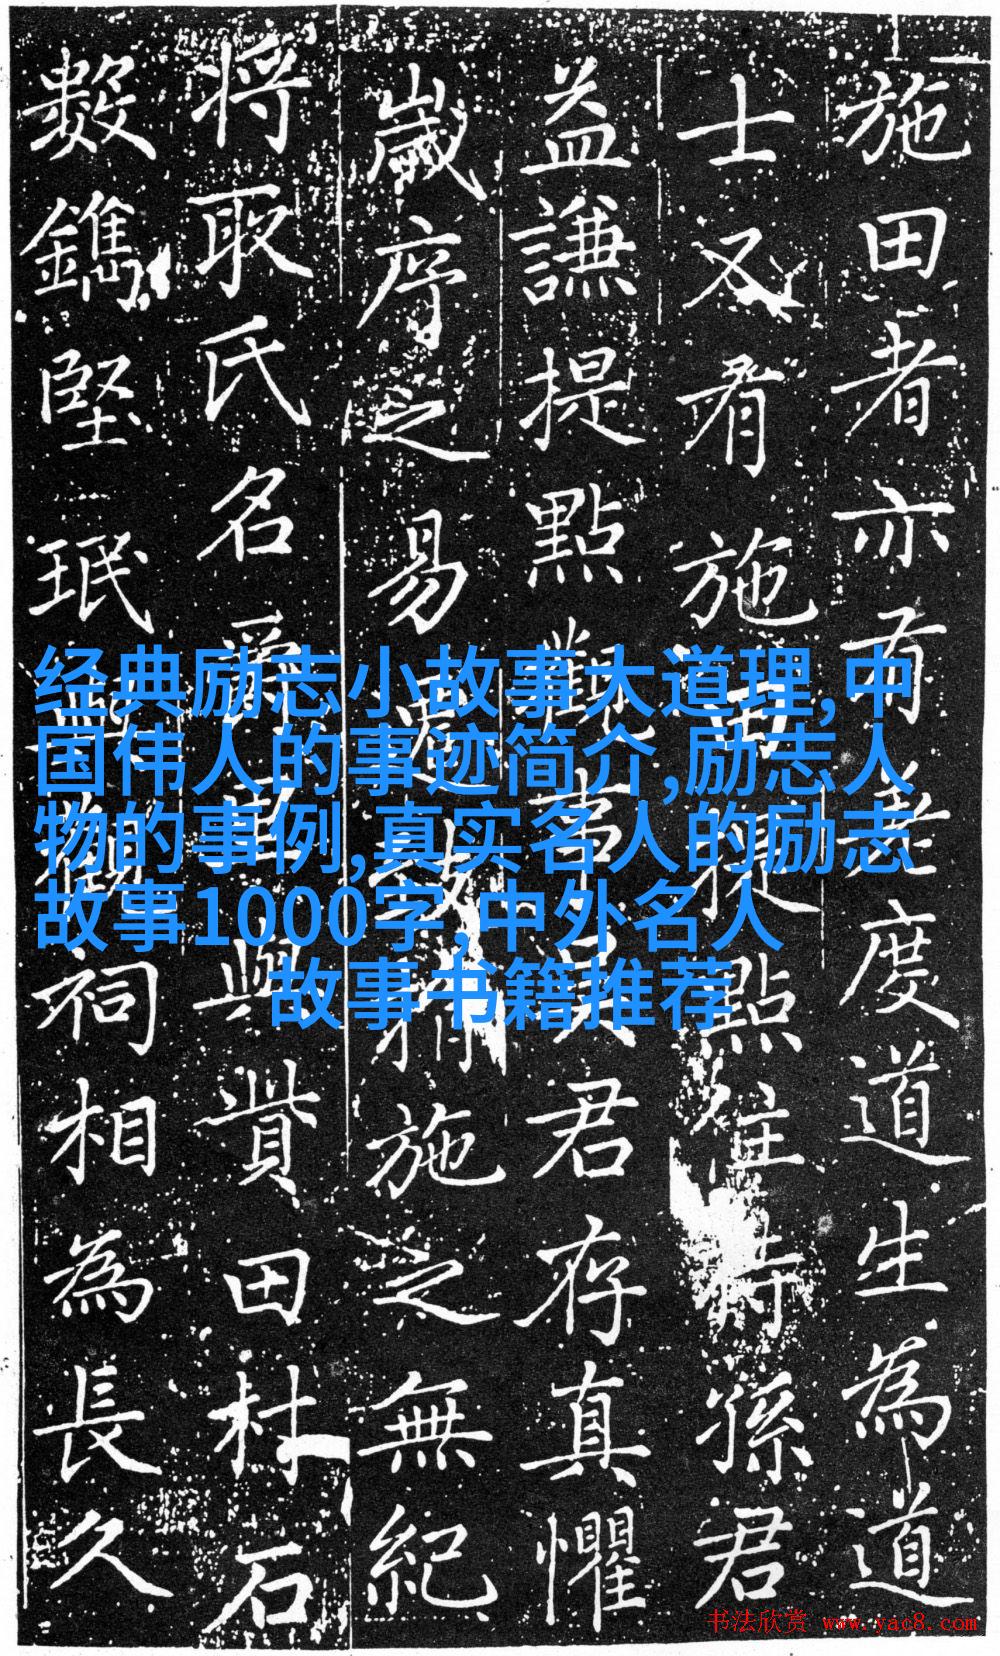 施田者亦有耆度道生為道
士又有施田提點往待孫君
益謙提點崇真君存真懼
歲序之易施之無紀
将取氏名與貲田村石
數鐫堅珉祠相為長久
经典励志小故事大道理,中
国伟人的事迹简介,励志人
物的事例,真实名人的励志
故事1000字,中外名人
故事书籍推荐
书法欣赏 www.yac8.com